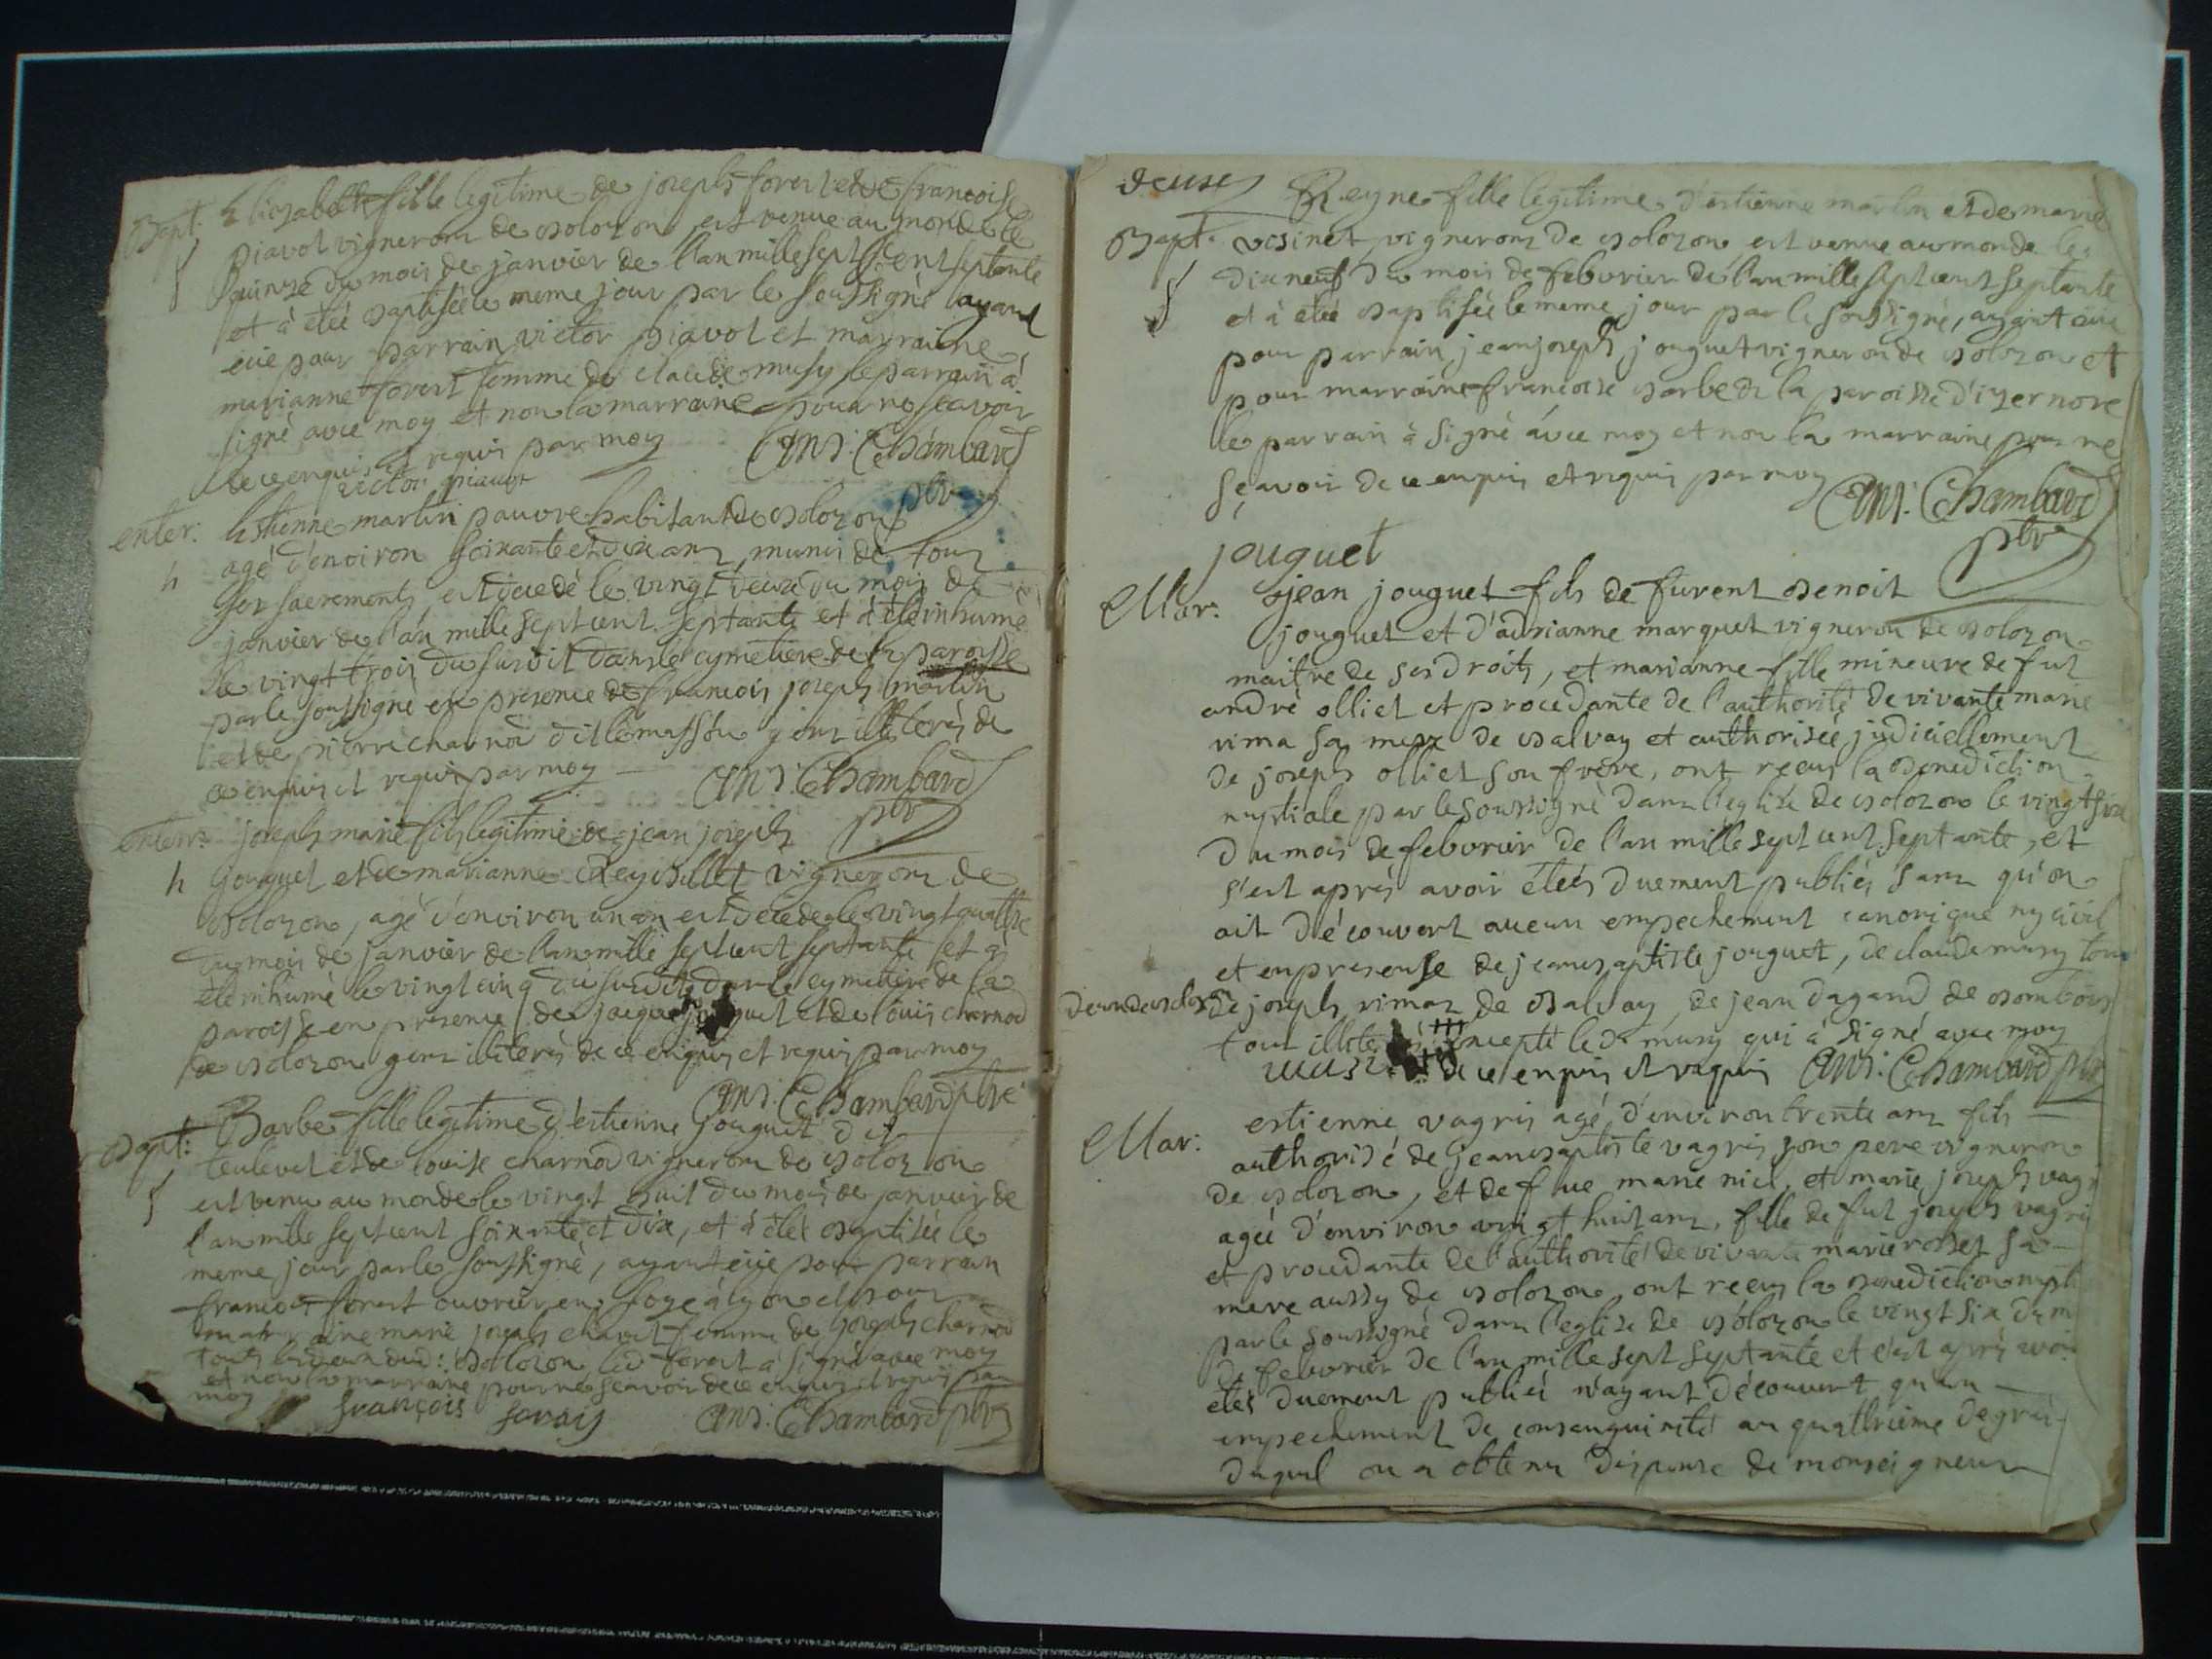 Bapt. Elizabeth fille legitime de joseph forest et de francoise
piavot vignerons de bolozon est venue au monde le
quinze du mois de janvier de l'an mille sept cent septante
et à étéé baptisée le meme jour par le soussigné ayant
eüe pour parrain victor piavot et marraine
marianne forest femme de claude musy le parrain à
signé avec moy et non la marraine pour ne scavoir
de ce enquis et requis par moy
victor piavot
ant: Chambard
ptre
enter: Estienne martin pauvre habitant de bolozon
agé d'environ soixante et dix ans, munis de tous
ses sacrements, est decedé le vingt deux du mois de
janvier de l'an mille sept cent septante et à été inhumé
le vingt trois du susdit dans le cymetiere de la paroisse
par le soussigné en presence de francois joseph martin
et de pierre charnod dit le massu gens illiterés de
ce enquis et requis par moy
ant: Chambard
ptre
enterr: joseph marie fils legitime de jean joseph
Jouguet et de marianne Reydellet vignerons de
bolozon, agé d'environ un an est decedé le vingt quattre
du mois de janvier de l'an mille sept cent septante et à
été inhumé le vingt cinq du susdit dans le cymetiere de la
paroisse en presence de jacque jouguet et de louis charnod
de bolozon gens illiterés de ce enquis et requis par moy
ant: Chambard ptre
bapt: Barbe fille legitime d'estienne Jouguet dit
teulevet et de louise charnod vignerons de bolozon
est venue au monde le vingt huit du mois de janvier de
l'an mille sept cent soixante et dix, et à étéé baptisée le
meme jour par le soussigné, ayant eüe pour parrain
francois forest ouvrier en soye à lyon et pour
marraine marie joseph charvet femme de joseph charnod
tous deux dud: bolozon led forest à signé avec moy
et non la marraine pour ne scavoir de ce enquis et requis par
moy
françois forais
ant: Chambard ptre
deuse
Reyne fille legitime d'estienne martin et de marie
Bapt. visinet vignerons de bolozon est venue au monde le
dix neuf du mois de febvrier de l'an mille sept cent septante
et à étéé baptisée le meme jour par le soussigné, ayant eüe
pour parrain jean joseph jouguet vigneron de bolozon et
pour marraine francoise barbe de la paroisse d'izernore
le parrain à signé avec moy et non la marraine pour ne
sçavoir de ce enquis et requis par moy
ant: Chambard
ptre
jouguet
Mar: jean jouguet fils de furent benoit
jouguet et d'adrianne marquet vigneron de bolozon
maitre de ses droits, et marianne fille mineure de fut
andré olliet et procedante de l'authorité de vivante marie
rima sa mere de balvay et authorisée judiciellement
de joseph olliet son frere, ont receus la benediction
nuptiale par le soussigné dans l'eglise de bolozon le vingt six
du mois de febvrier de l'an mille sept cent septante, et
s'est aprés avoir étéés duement publiés sans qu'on
ait découvert aucun empechement canonique ny civil
et en presense de jean baptiste jouguet, de claude musy tous
deux de bolozon de joseph rimaz de balvay, de jean dagand de bombois
tous illiterés excepté led musy qui à signé avec moy
musi de ce enquis et requis ant: Chambard ptre
Mar: estienne vagris agé d'environ trente ans fils
authorisé de jean baptiste vagris son pere vigneron
de bolozon, et de fue marie niel, et marie joseph vagri
agée d'environ vingt huit ans, fille de fut joseph vagri
et procedante de l'authorité de vivante marie rosset sa
mere aussy de bolozon, ont receus la benediction nupti
par le soussigné dans l'eglise de bolozon le vingt six du m
de febvrier de l'an mille sept septante et c'est aprés avoir
étés duement publiés n'ayant découvert qu'un
empechement de consanguinité au quattrieme degré
duquel on a obtenu dispense de monseigneur